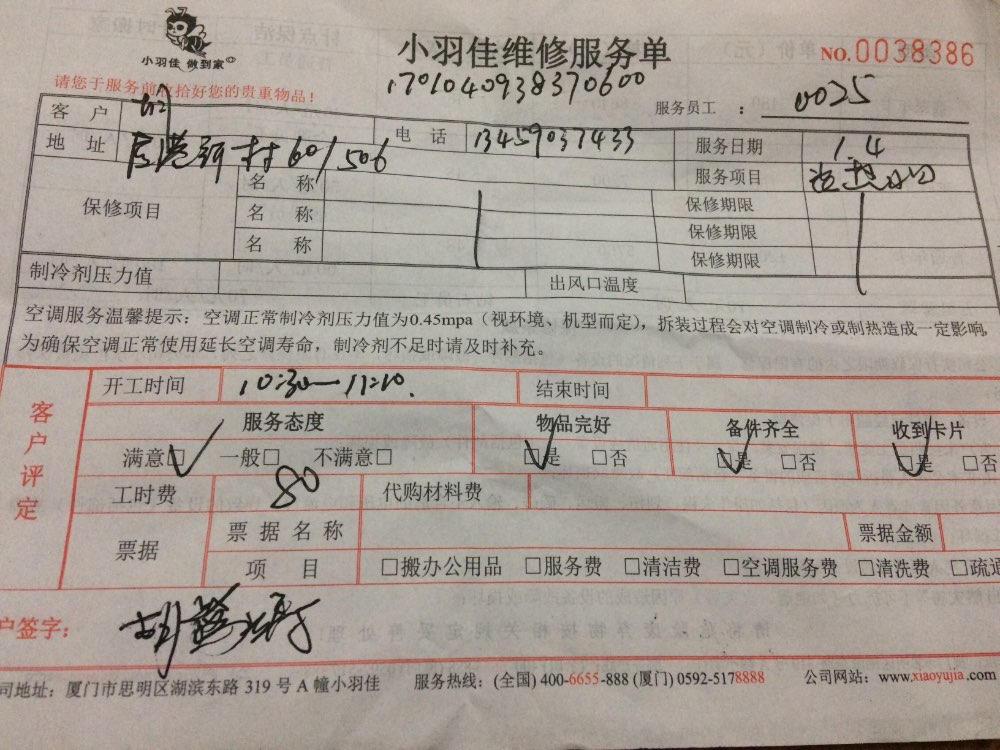 小羽佳 做到家
小羽佳维修服务单
NO.0038386
请您于服务前收拾好您的贵重物品！
1701040938370600
服务员工 ： 0025
客 户 胡
电 话 13459037433
服务日期 1.4
地 址 村601/506
服务项目
保修项目
名 称
保修期限
名 称
保修期限
名 称
保修期限
制冷剂压力值
出风口温度
空调服务温馨提示：空调正常制冷剂压力值为0.45mpa（视环境、机型而定），拆装过程会对空调制冷或制热造成一定影响，
为确保空调正常使用延长空调寿命，制冷剂不足时请及时补充。
客户评定
开工时间 10:30—11:10.
结束时间
服务态度 物品完好 备件齐全 收到卡片
满意□ 一般□ 不满意□ □是 □否 □是 □否 □是 □否
工时费 80 代购材料费
票据
票 据 名 称
票据金额
项 目 □搬办公用品 □服务费 □清洁费 □空调服务费 □清洗费 □疏通
户签字：
司地址：厦门市思明区湖滨东路 319 号 A 幢小羽佳 服务热线：(全国) 400-6655-888 (厦门) 0592-5178888 公司网站：www.xiaoyujia.com